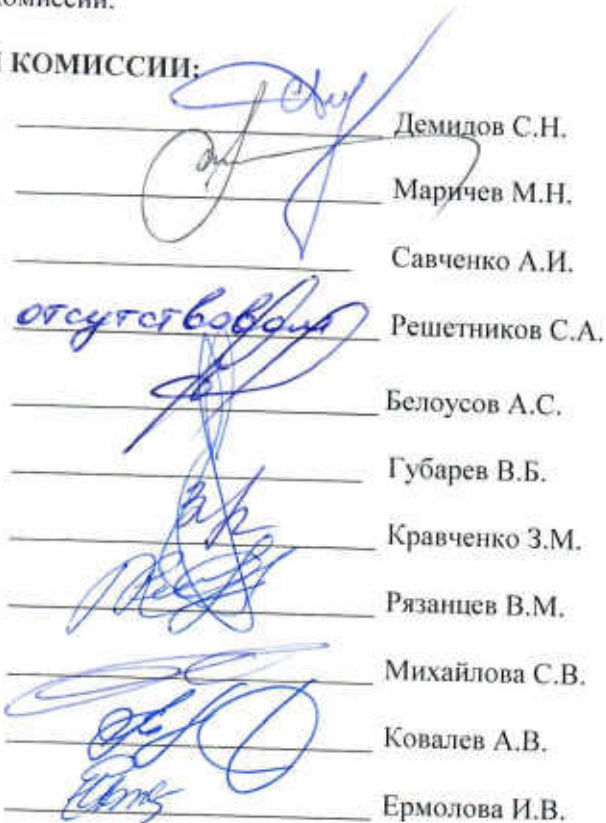 комиссии.
КОМИССИИ:
Демидов С.Н.
Маричев М.Н.
Савченко А.И.
отсутствовал Решетников С.А.
Белоусов А.С.
Губарев В.Б.
Кравченко З.М.
Рязанцев В.М.
Михайлова С.В.
Ковалев А.В.
Ермолова И.В.